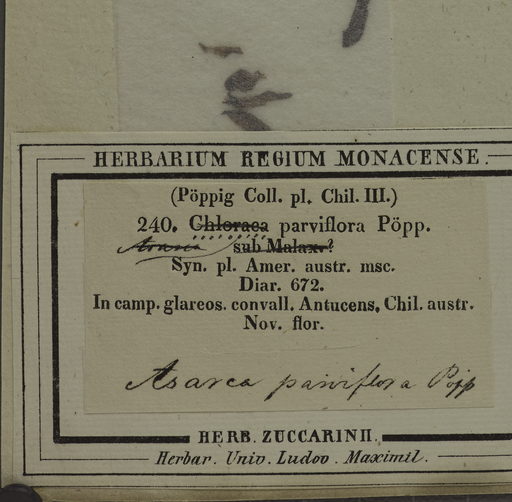 HERBARIUM REGIUM MONACENSE.
(Pöppig Coll. pl. Chil. III.)
240. Chloraea parviflora Pöpp.
Asarca sub Malax.?
Syn. pl. Amer. austr. msc.
Diar. 672.
In camp. glareos. convall. Antucens. Chil. austr.
Nov. flor.
Asarca parviflora Pöpp
HERB. ZUCCARINII.
Herbar. Univ. Ludov. Maximil.